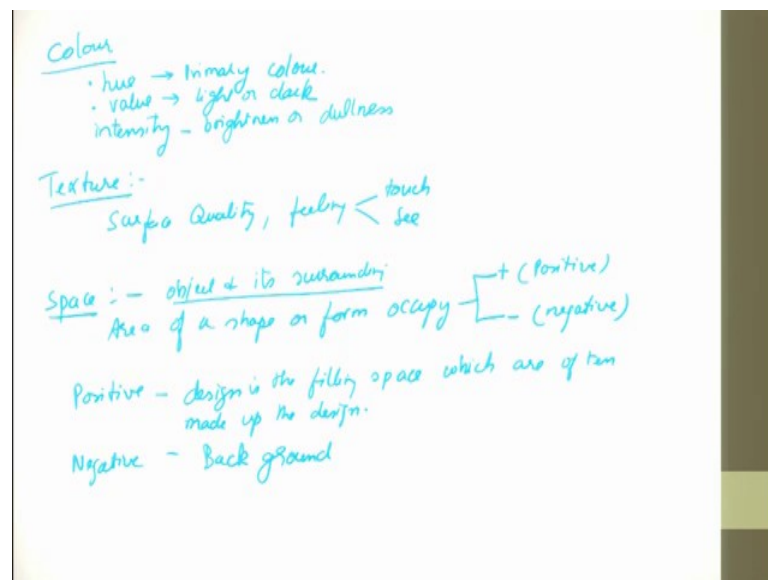 Colour
· hue → Primary colour.
· value → light or dark
intensity - brightness or dullness
Texture :-
Surface Quality, feeling < touch
see
Space :- object & its surrounding
Area of a shape or form occupy + (Positive)
- (negative)
Positive - design is the filling space which are often
made up the design.
Negative - Back ground